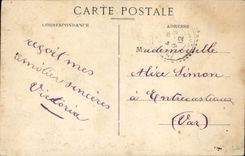 CARTE POSTALE
CORRESPONDANCE
ADRESSE
reçoit mes
amitiés sincères
Victoria
Mademoiselle
Alice Simon
à Entrecasteaux
(Var)